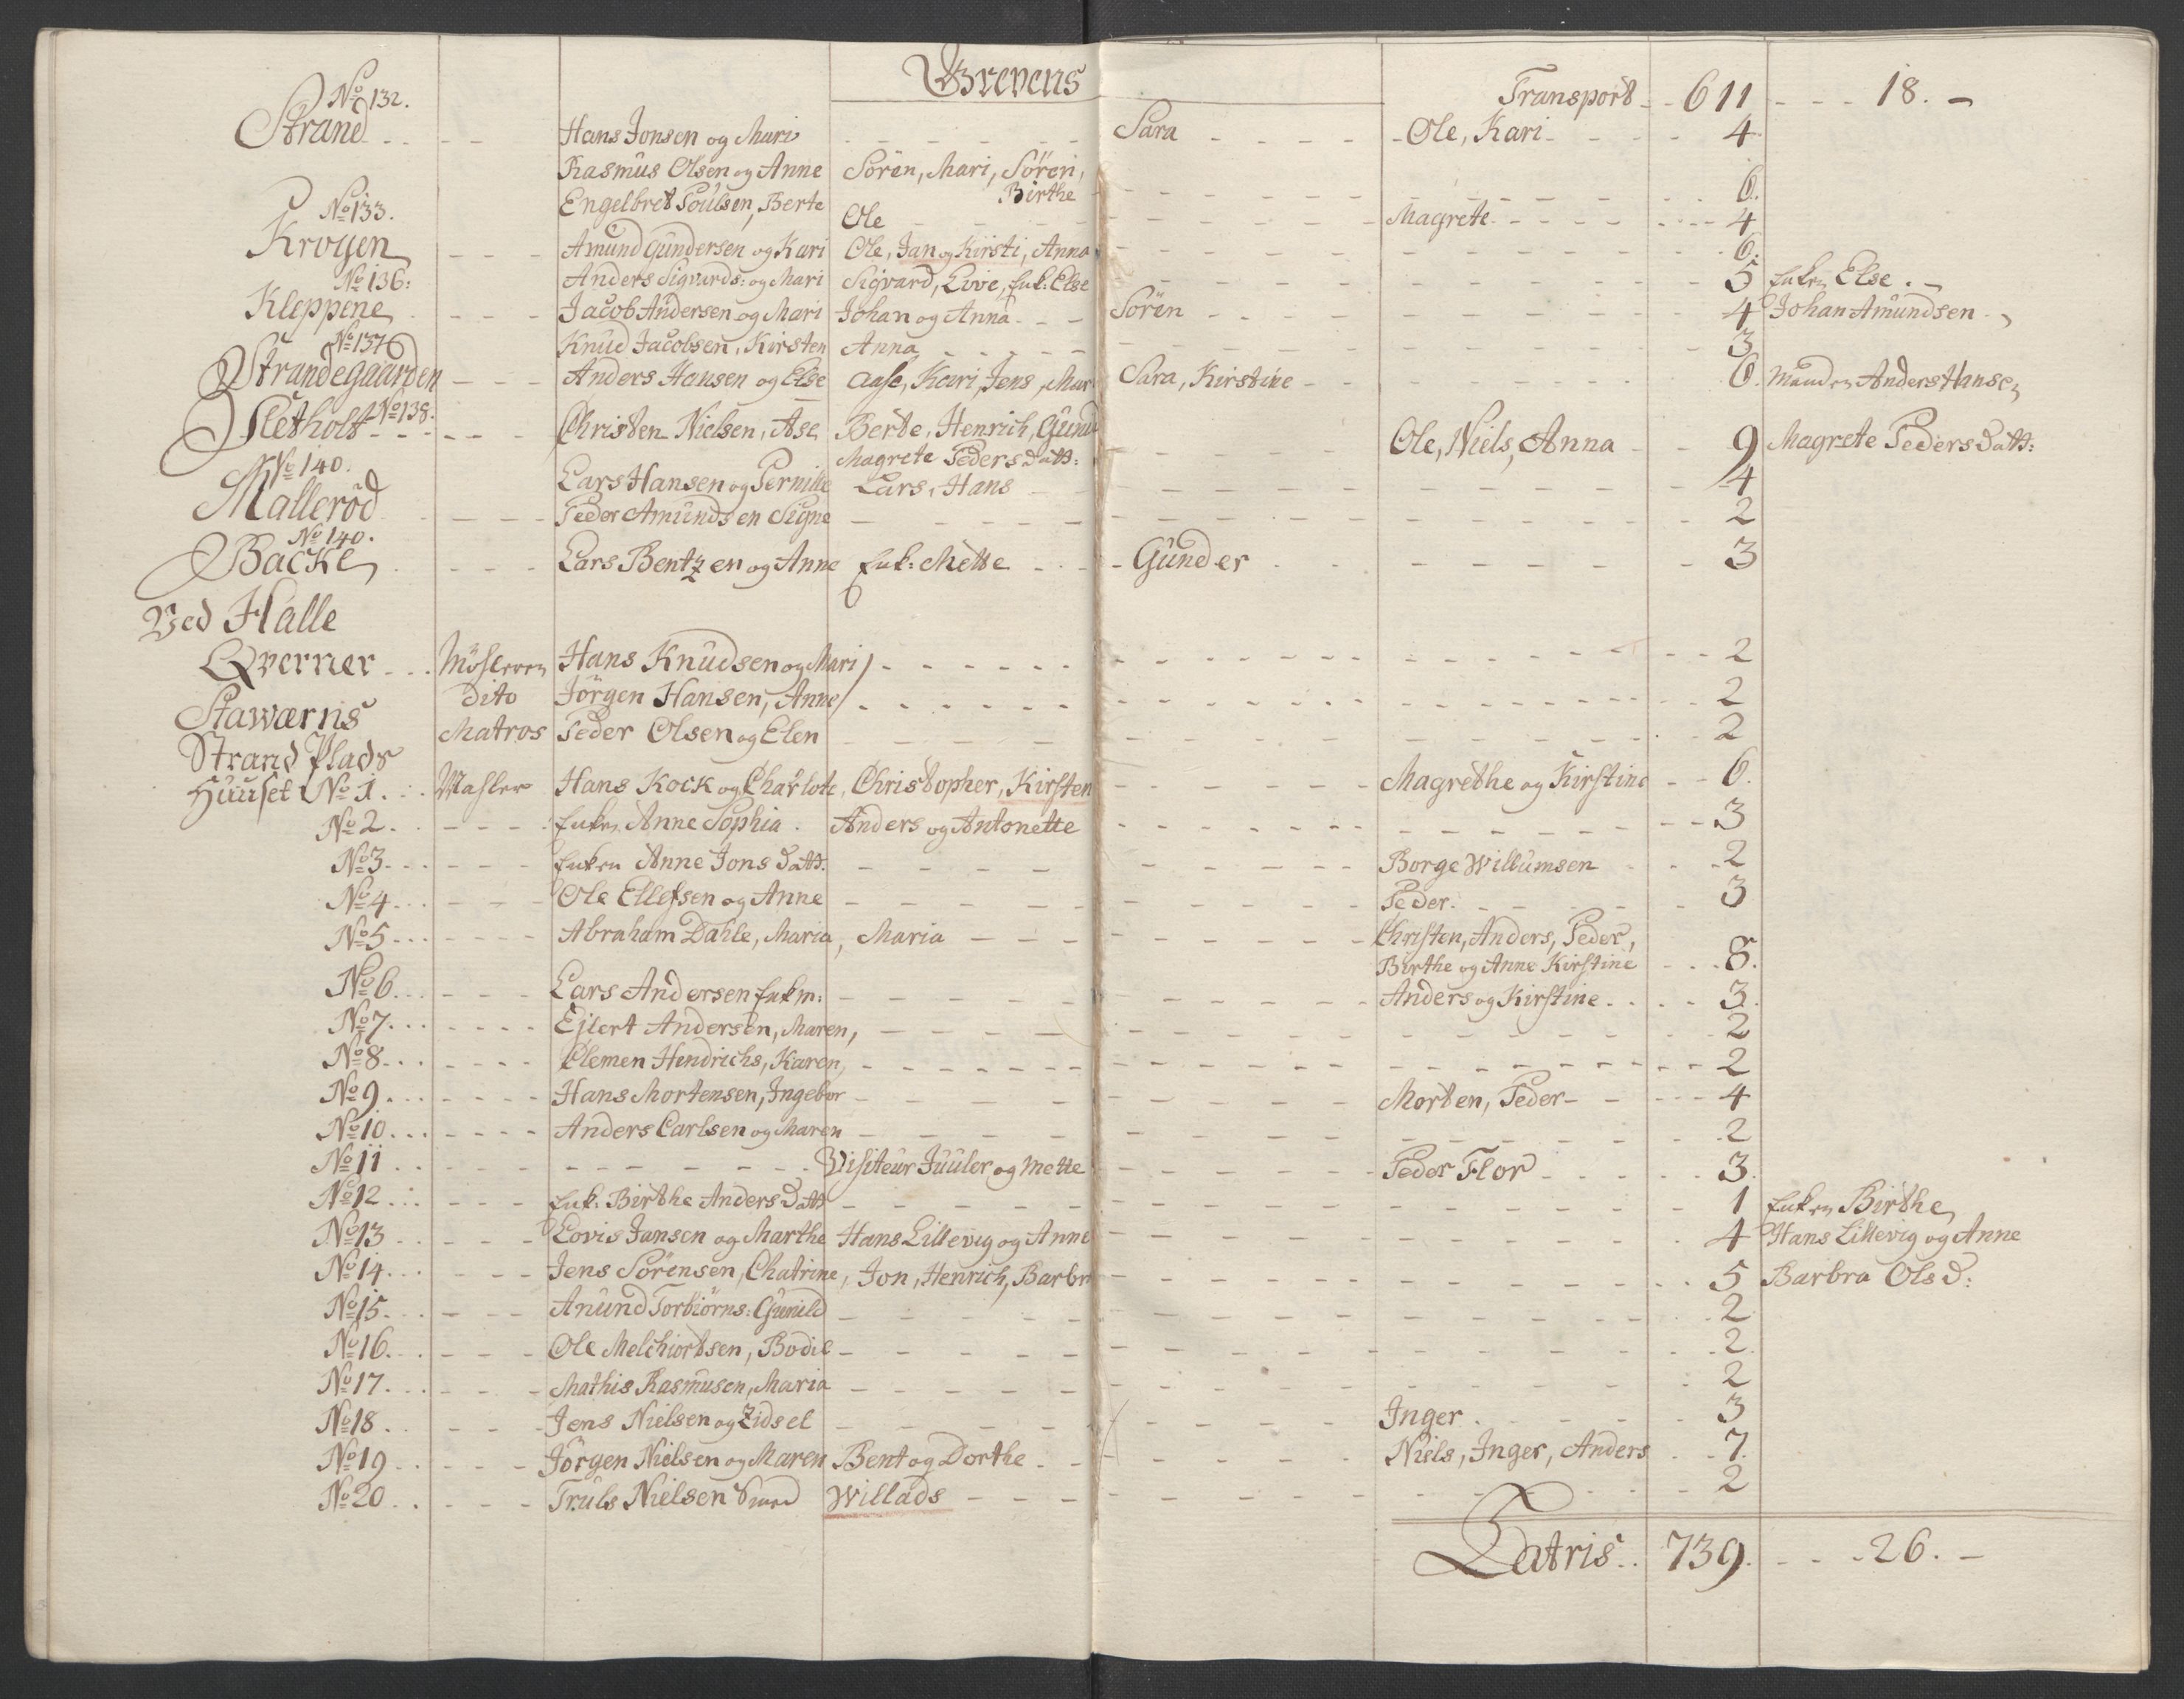 Grevens
Transport 611 18.
No 132.
Strand Hans Jonsen og Mari Sara Ole, Kari 4
Rasmus Olsen og Anne Sören, Mari, Sören, Birthe 6.
No 133. Engelbret Poulsen, Berte Ole Magrete 4
Kroyen Amund Gundersen og Kari Ole, Jan og Kirsti, Anna 6.
No 136: Anders Sigvards: og Mari Sigvard, Live, Enk: Else 5 Enken Else.
Kleppene Jacob Andersen og Mari Johan og Anna Sören 4 Johan Amundsen
No 137 Knud Jacobsen, Kirsten Anna 3
Strandegaarden Anders Hansen og Else Aase, Kari, Jens, Mar Sara, Kirstine 6. Manden Anders Hansen
Sletholt No 138. Christen Nielsen, Ase Berte, Henrich, Gund Ole, Niels, Anna 9 Magrete Peders Datt:
Magrete Peders Datt:
No 140. Lars Hansen og Pernille Lars, Hans 4
Malleröd Peder Amundsen Signe 2
No 140.
Backe Lars Bentzen og Anne Enk: Mette Gunder 3
Ved Halle
Qverner Möleren Hans Knudsen og Mari 2
dito Jörgen Hansen, Anne 2
Stawærns Matros Peder Olsen og Elen 2
Strand Plads
Huuset No 1. Mahler Hans Kock og Charlote, Christopher, Kirsten Magrethe og Kirstine 6.
No 2. Enken Anne Sophia. Anders og Antonette 3
No 3. Enken Anne Jons Datt: Borge Willumsen 2
No 4. Ole Ellefsen og Anne Peder. 3
No 5. Abraham Dahle, Maria, Maria Christen, Anders, Peder,
Birthe og Anne Kirstine 8.
No 6. Lars Andersen Enkm: Anders og Kirstine. 3.
No 7. Ejlert Andersen, Maren, 2
No 8. Clemen Hendrichs, Karen, 2
No 9. Hans Mortensen, Ingebor Morten, Peder 4
No 10. Anders Carlsen og Maren 2
No 11 Visiteur Juuler og Mette Peder Flor 3.
No 12 Enk: Birthe Anders Datt 1 Enken Birthe
No 13 Lovis Jansen og Marthe Hans Lillevig og Anne 4 Hans Lillevig og Anne
No 14. Jens Sörensen, Chatrine, Jon, Henrich, Barbr 5 Barbra Ols D:
No 15. Anund Torbiörns: Gunild 2
No 16. Ole Melchiortsen, Bodil 2.
No 17. Mathis Rasmusen, Maria 2
No 18. Jens Nielsen og Zidsel Inger. 3
No 19 Jörgen Nielsen og Maren Bent og Dorthe Niels, Inger, Anders 7.
No 20. Truls Nielsen Smed Willads 2
Latris 739. 26.